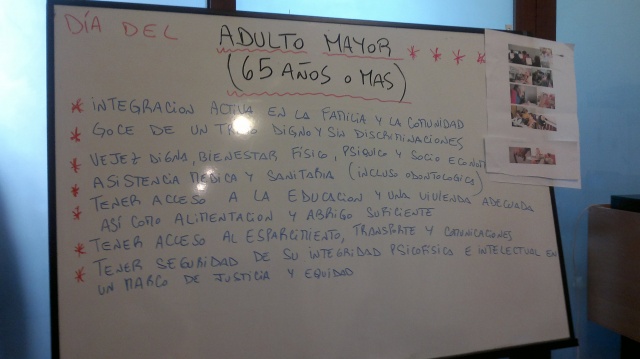 DÍA DEL ADULTO MAYOR * * * *
(65 AÑOS O MAS)
* INTEGRACION ACTIVA EN LA FAMILIA Y LA COMUNIDAD
* GOCE DE UN TRATO DIGNO Y SIN DISCRIMINACIONES
* VEJEZ DIGNA, BIENESTAR FÍSICO, PSIQUICO Y SOCIO
* ASISTENCIA MEDICA Y SANITARIA (INCLUSO ODONTOLOGICA)
* TENER ACCESO A LA EDUCACION Y UNA VIVIENDA ADECUADA
ASÍ COMO ALIMENTACION Y ABRIGO SUFICIENTE
* TENER ACCESO AL ESPARCIMIENTO, TRANSPORTE Y COMUNICACIONES
* TENER SEGURIDAD DE SU INTEGRIDAD PSICOFISICA E INTELECTUAL EN
UN MARCO DE JUSTICIA Y EQUIDAD